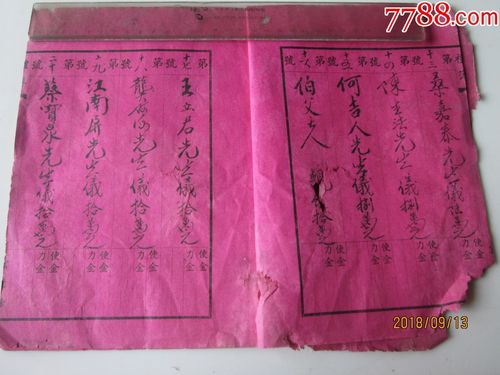 7788.com
第十三號
蔡嘉泰先生儀伍萬元
使金
力金
第十四號
陳 法先生儀捌萬元
使金
力金
第十五號
何吉人先生儀捌萬元
使金
力金
第十六號
伯父大人 儀拾萬元
使金
力金
第十七號
王立君先生儀拾萬元
使金
力金
第十八號
龔 先生儀拾萬元
使金
力金
第十九號
江南屏先生儀拾萬元
使金
力金
第二十號
蔡寶泉先生儀拾萬元
使金
力金
2018/09/13